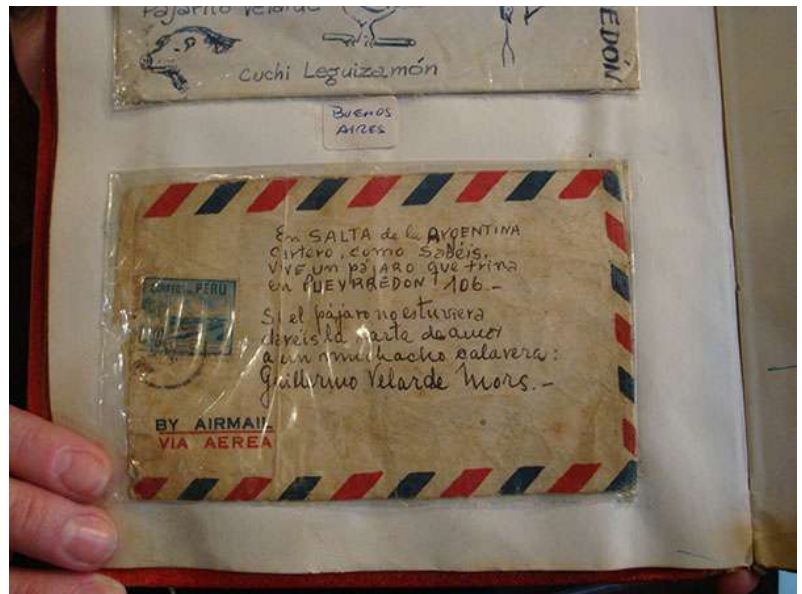 Pajarito Velarde
Cuchi Leguizamón
EDÓN
BUENOS
AIRES
En SALTA de la ARGENTINA
cartero, como sabéis,
VIVE un pájaro que trina
en PUEYRREDON 106.-
Si el pájaro no estuviera
dareis la carta de amor
a un muchacho calavera:
Guillermo Velarde Mors.-
CORREOS PERÚ
BY AIRMAIL
VIA AEREA